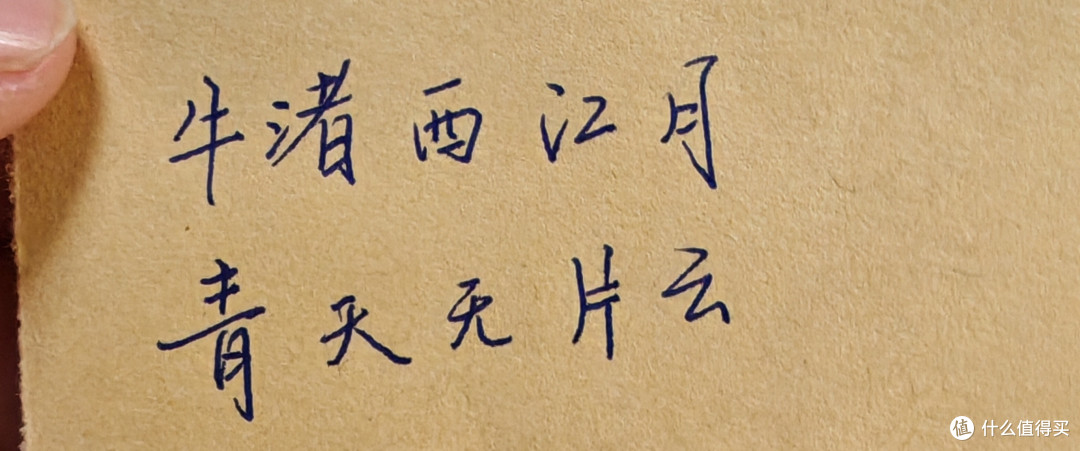 牛渚西江月
青天无片云
值 什么值得买